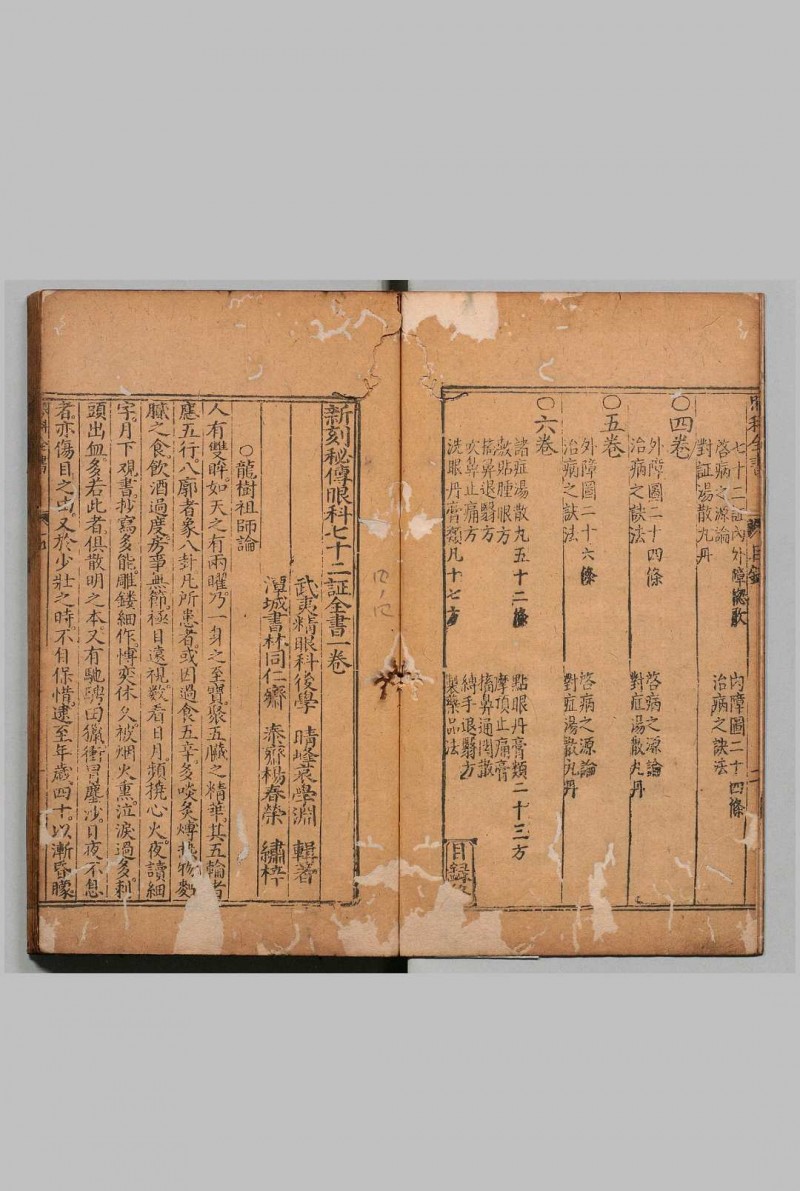 眼科全書 目錄
七十二証內外障總歌 內障圖二十四條
啓病之源論 治病之訣法
對証湯散丸丹
○四卷
外障圖二十四條 啓病之源論
治病之訣法 對症湯散丸丹
○五卷
外障圖二十六條 啓病之源論
治病之訣法 對症湯散丸丹
○六卷
諸症湯散丸五十二條 點眼丹膏類二十三方
敷貼腫眼方 摩頂止痛膏
搐鼻退翳方 搐鼻通関散
吹鼻止痛方 縛手退翳方
洗眼丹膏類凡十七方 製藥品法
目錄終
新刻秘傳眼科七十二証全書一卷
武夷精眼科後學 晴峰袁學淵 輯著
潭城書林同仁齋 泰齋楊春榮 繡梓
○龍樹祖師論
人有雙眸。如天之有兩曜。乃一身之至寶。聚五臟之精華。其五輪者
應五行。八廓者象八卦。凡所患者。或因過食五辛。多啖炙煿熱物。麪
臟之食。飲酒過度。房事無節。極目遠視。數看日月。頻撓心火。夜讀細
字。月下观書。抄寫多能。雕鏤細作。博奕休久。被烟火熏。泣淚過多。刺
頭出血多。若此者。俱散明之本。又有馳騁田獵。衝冒塵沙。日夜不息
者。亦傷目之由。又於少壯之時。不自保惜。逮至年歲四十。以漸昏矇
眼科全書 卷一